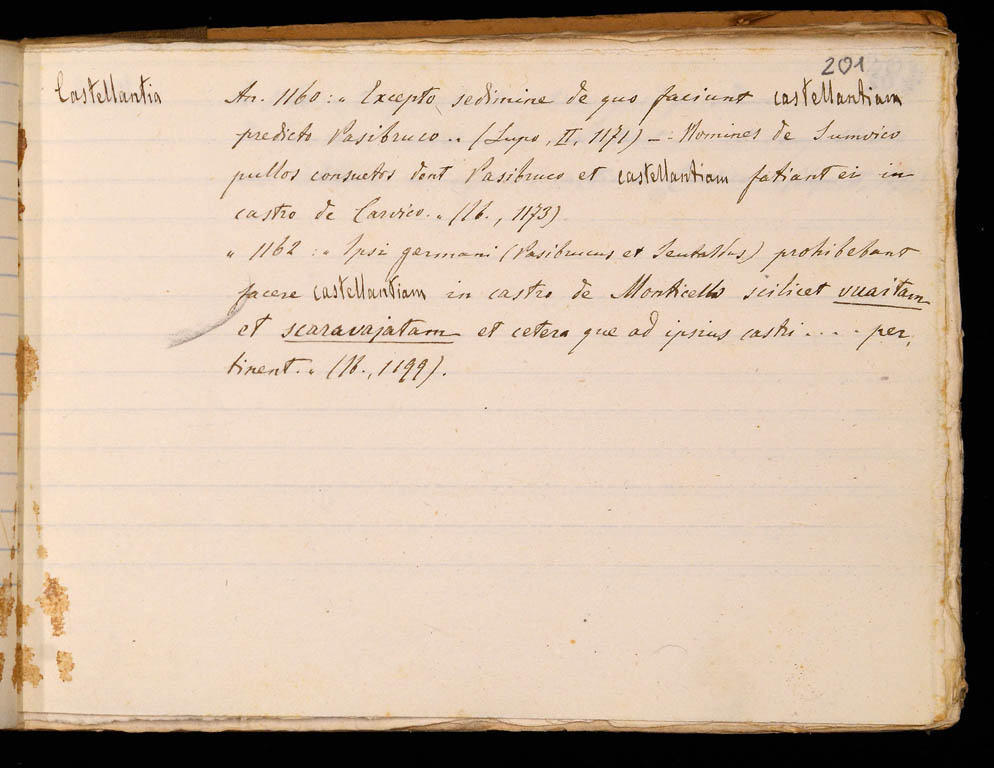 201
Castellantia An. 1160 : „ Excepto sedimine de quo faciunt castellantiam
predicto Pasibruco .. (Lupo, II, 1171) – : Homines de Sumvico
pullos consuetos dent Pasibruco et castellantiam fatiant ei in
castro de Carvico. „ (Ib., 1173)
„ 1162 : „ Ipsi germani (Pasibrucus et ) prohibebant
facere castellantiam in castro de Monticello scilicet vuaitam
et scaravajatam et cetera que ad ipsius castri .... per,
tinent. „ (Ib., 1199).